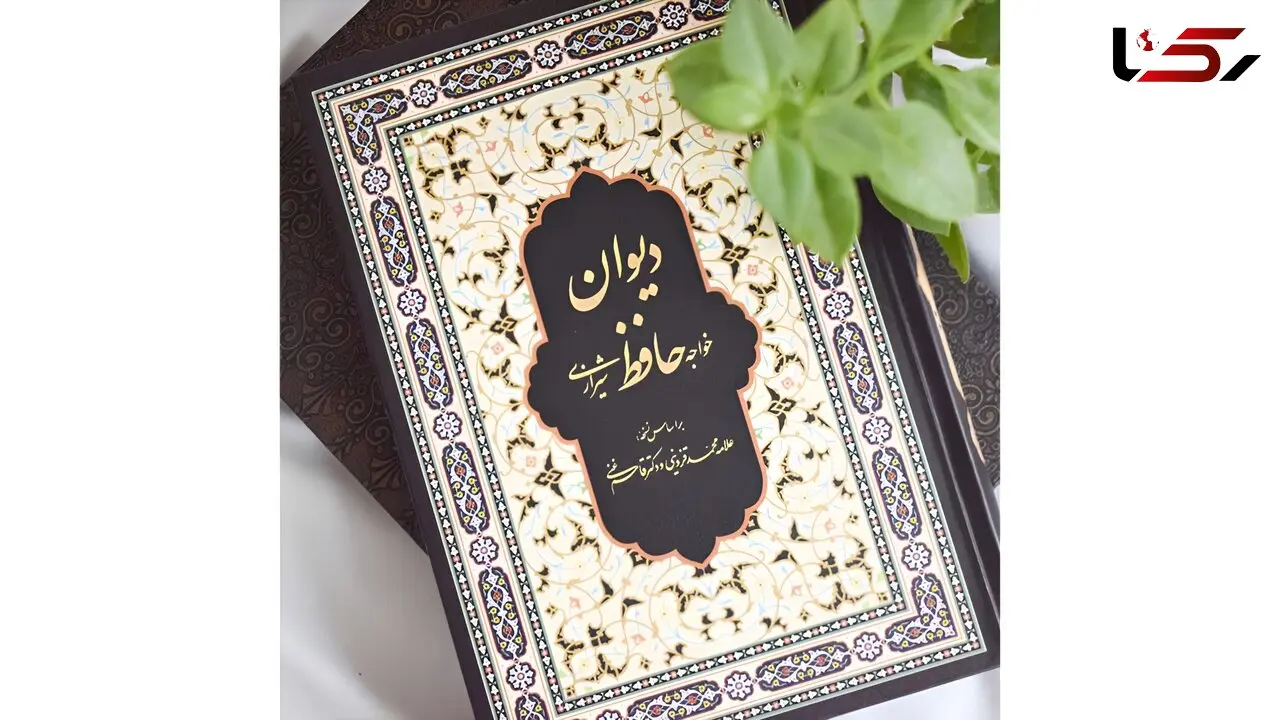 رکنا
دیوان
خواجه حافظ شیرازی
بر اساس نسخهٔ
علامه محمد قزوینی و دکتر قاسم غنی